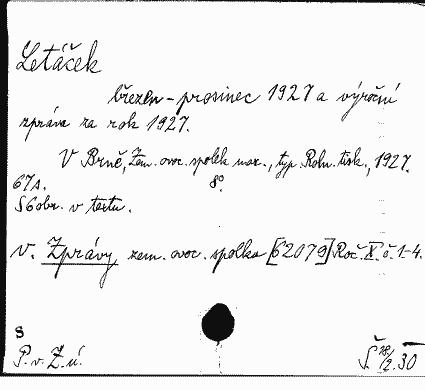 Letáček
březen - prosinec 1927 a výroční
zpráva za rok 1927.
V Brně, Zem. ovoc. spolek mor., typ. Roln. tisk., 1927.
67 s. 8°.
S 6 obr. v textu.
v. Zprávy zem. ovoc. spolku [62079] Roč. X. č. 1-4.
S
P. v. Z. ú. Š. 28/2. 30